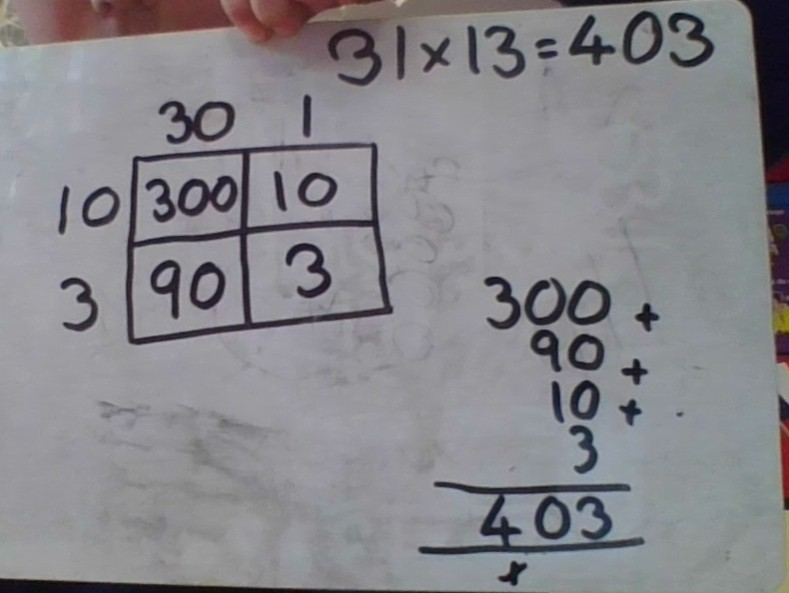 31×13=403
30 1
10 300 10
3 90 3
300 +
90 +
10 +
3
403